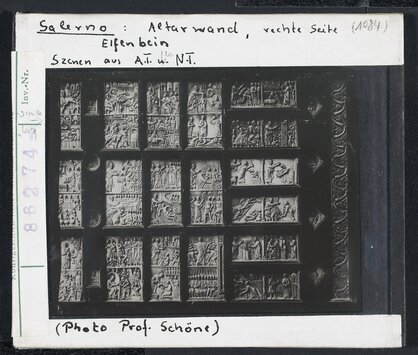 Salerno : Altarwand, rechte Seite (1084)
Elfenbein
Szenen aus A.T. u. N.T.
Inv.-Nr.
86274
(Photo Prof. Schöne)